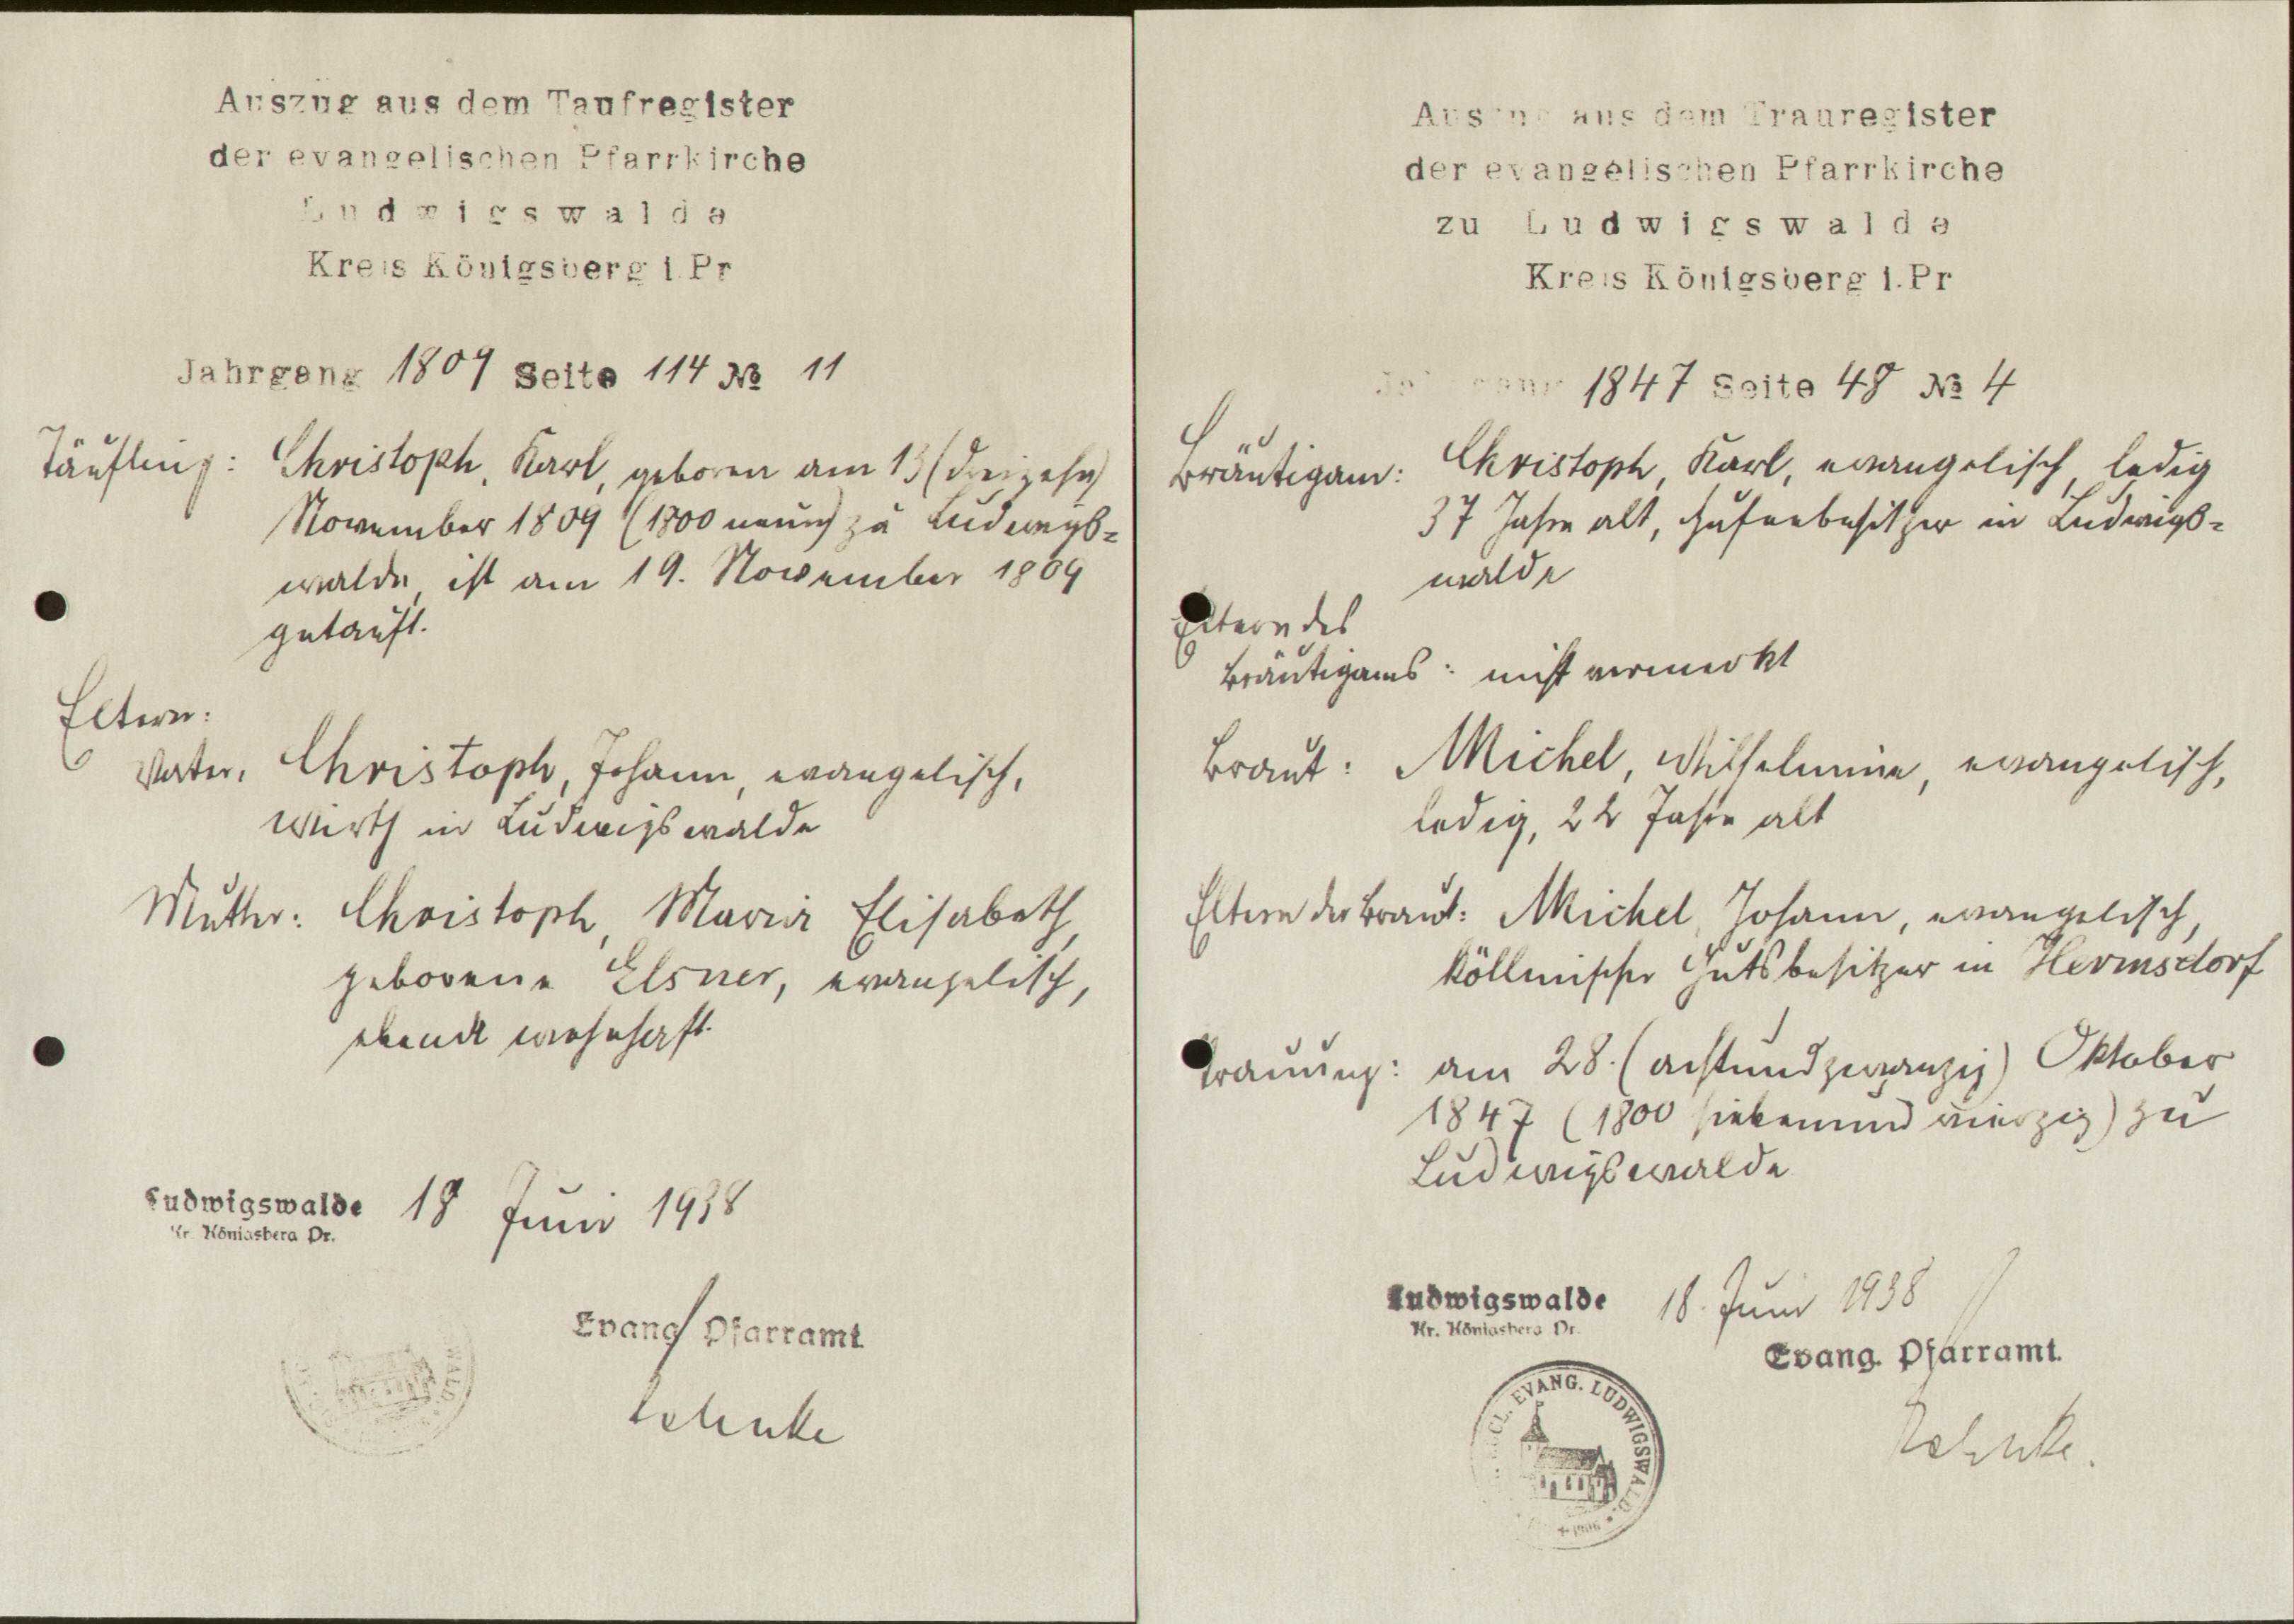 Auszug aus dem Taufregister
der evangelischen Pfarrkirche
Ludwigswalde
Kreis Königsberg i. Pr
Jahrgang 1809 Seite 114 № 11
Täufling: Christoph, Karl, geboren am 13 (dreizehn)
November 1809 (1800 neun) zu Ludwigs=
walde, ist am 19. November 1809
getauft.
Eltern:
Vater: Christoph, Johann, evangelisch,
Wirth in Ludwigswalde
Mutter: Christoph, Maria Elisabeth,
geborene Elsner, evangelisch,
ebenda wohnhaft.
Ludwigswalde 18 Juni 1938
Kr. Königsberg Pr.
Evang. Pfarramt.
WALD.
Auszug aus dem Trauregister
der evangelischen Pfarrkirche
zu Ludwigswalde
Kreis Königsberg i. Pr
Jahrgang 1847 Seite 48 № 4
Bräutigam: Christoph, Karl, evangelisch, ledig
37 Jahre alt, Hufenbesitzer in Ludwigs=
walde
Eltern des
Bräutigams: nicht vermerkt
Braut: Michel, Wilhelmine, evangelisch,
ledig, 22 Jahre alt
Eltern der Braut: Michel, Johann, evangelisch,
köllmischer Gutsbesitzer in Hermsdorf
Trauung: am 28. (achtundzwanzig) Oktober
1847 (1800 siebenundvierzig) zu
Ludwigswalde
Ludwigswalde 18. Juni 1938
Kr. Königsberg Pr.
Evang. Pfarramt.
EVANG. LUDWIGSWALD.